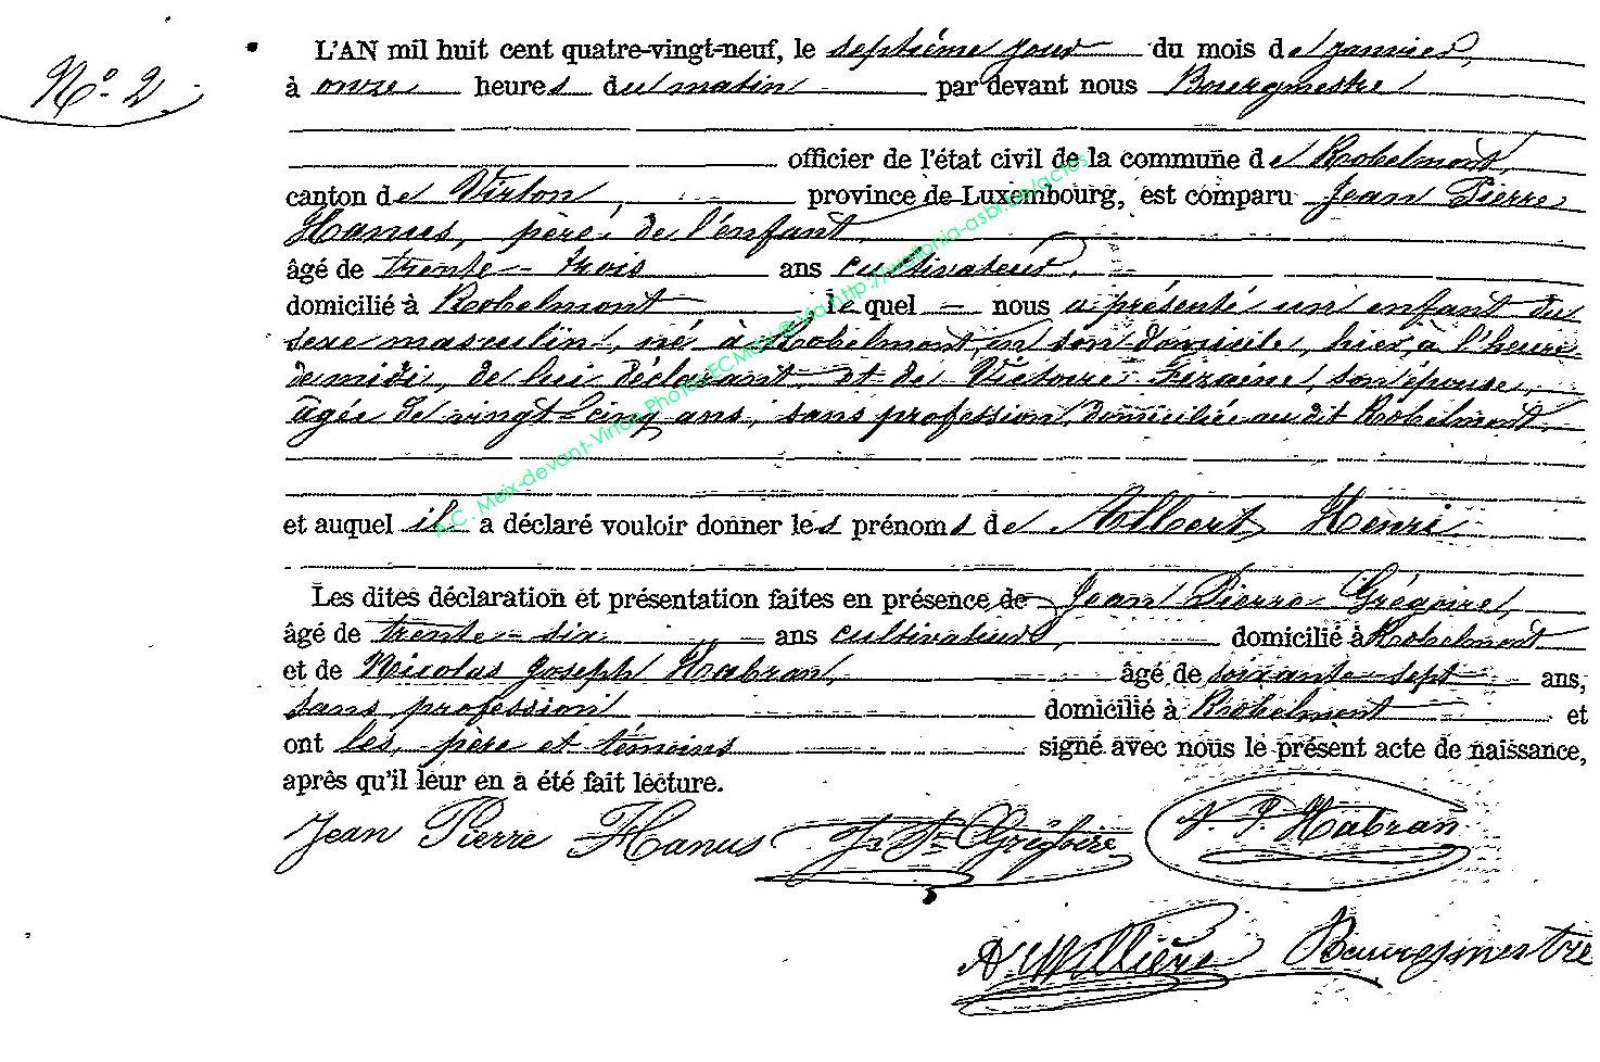 N° 2.
L'AN mil huit cent quatre-vingt-neuf, le septième jour du mois de janvier,
à onze heures du matin par devant nous Bourgmestre
officier de l'état civil de la commune de Robelmont,
canton de Virton, province de Luxembourg, est comparu Jean Pierre
Hanus, père de l'enfant
âgé de trente-trois ans cultivateur,
domicilié à Robelmont, lequel nous a présenté un enfant du
sexe masculin, né à Robelmont, en son domicile, hier, à l'heure
de midi, de lui déclarant et de Victoire son épouse,
âgée de vingt-cinq ans, sans profession, domiciliée au dit Robelmont,
et auquel il a déclaré vouloir donner les prénoms de Albert Henri.
Les dites déclaration et présentation faites en présence de Jean Pierre Grégoire,
âgé de trente-six ans cultivateur, domicilié à Robelmont
et de Nicolas Joseph Habran, âgé de soixante-sept ans,
sans profession domicilié à Robelmont et
ont les, père et témoins signé avec nous le présent acte de naissance,
après qu'il leur en a été fait lecture.
Jean Pierre Hanus J. Pre Grégoire N. J. Habran
Willière Bourgmestre
A.C. Meix-devant-Virton Photos ECMdV © Via http://wallonia-asbl.be/actes